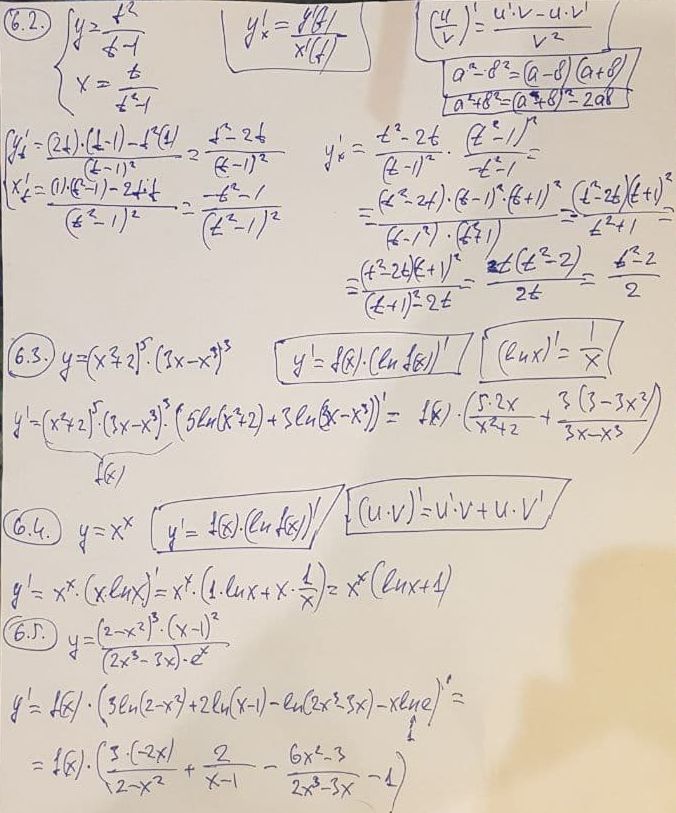 6.2. { y = t²/(t-1)
x = t/(t²-1)
y'ₓ = y'(t)/x'(t)
(u/v)' = (u'·v - u·v')/v²
a²-b² = (a-b)(a+b)
a²+b² = (a+b)² - 2ab
{ y'ₜ = ((2t)·(t-1) - t²(1))/(t-1)² = (t²-2t)/(t-1)²
x'ₜ = ((1)·(t²-1) - 2t·t)/(t²-1)² = (-t²-1)/(t²-1)²
y'ₓ = (t²-2t)/(t-1)² · (t²-1)²/(-t²-1) =
= ((t²-2t)·(t-1)²·(t+1)²)/((t-1²)·(t²+1)) = ((t²-2t)(t+1)²)/(t²+1) =
= ((t²-2t)(t+1)²)/((t+1)²-2t) = t(t²-2)/2t = (t²-2)/2
6.3. y = (x²+2)⁵·(3x-x³)³
y' = f(x)·(ln f(x))'
(ln x)' = 1/x
y' = (x²+2)⁵·(3x-x³)³·(5ln(x²+2) + 3ln(3x-x³))' = f(x)·(5·2x/(x²+2) + 3(3-3x²)/(3x-x³))
f(x)
6.4. y = xˣ
y' = f(x)·(ln f(x))'
(u·v)' = u'·v + u·v'
y' = xˣ·(x·lnx)' = xˣ·(1·lnx + x·1/x) = xˣ(lnx+1)
6.5. y = ((2-x²)³·(x-1)²)/((2x³-3x)·eˣ)
y' = f(x)·(3ln(2-x²) + 2ln(x-1) - ln(2x³-3x) - xlne)' =
1
= f(x)·(3·(-2x)/(2-x²) + 2/(x-1) - (6x²-3)/(2x³-3x) - 1)